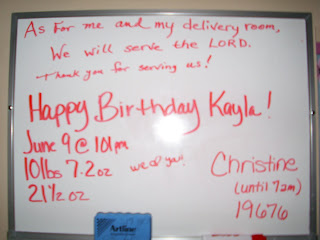 As For me and my delivery room,
We will serve the LORD.
Thank you for serving us!
Happy Birthday Kayla!
June 9 @ 101pm
10lbs 7.2oz
we ♡ you!
21 1/2 oz
Christine
(until 7am)
19676
Artline